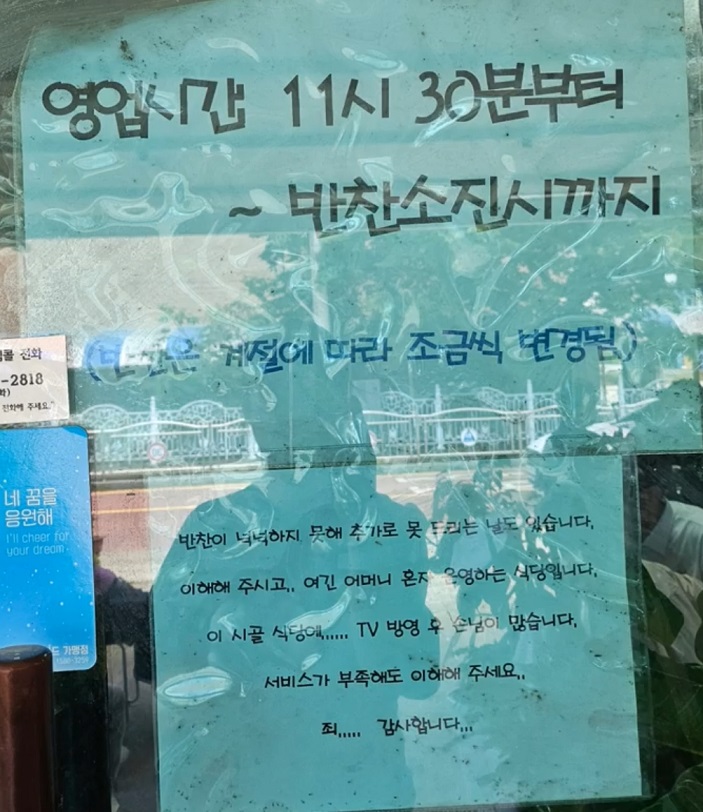 영업시간 11시 30분부터
~ 반찬소진시까지
(반찬은 계절에 따라 조금씩 변경됨)
콜 전화
-2818
전화해 주세요."
네 꿈을
응원해
I'll cheer for
your dream
드 가맹점
반찬이 넉넉하지 못해 추가로 못 드리는 날도 있습니다.
이해해 주시고.. 여긴 어머니 혼자 운영하는 식당입니다.
이 시골 식당에...... TV 방영 후 손님이 많습니다.
서비스가 부족해도 이해해 주세요..
죄..... 감사합니다...